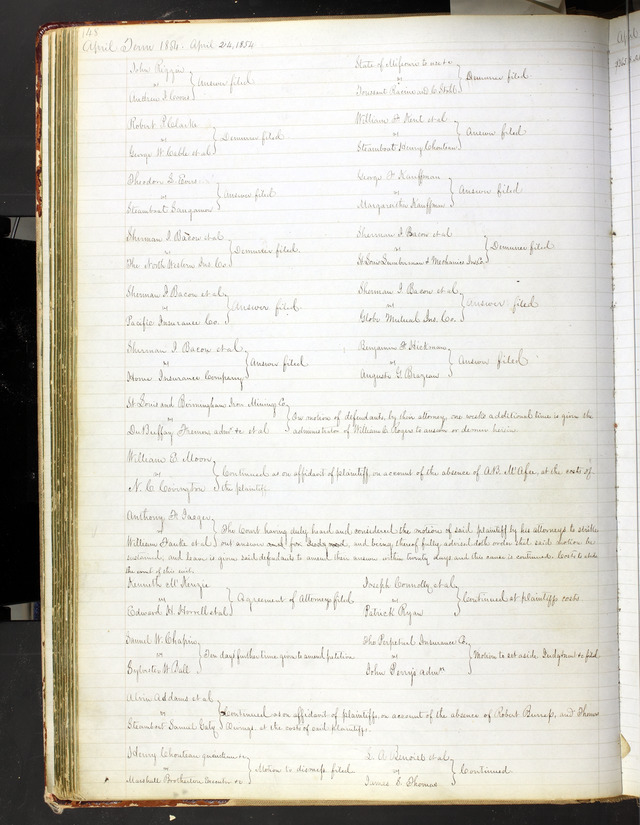 148
April Term 1854. April 24, 1854
John Riggin
vs
Andrew J. Coons
Answer filed
State of Missouri to use &c
vs
Toussant Racine and C Stahl
Demurrer filed
Robert P. Clarke
vs
George W Cable et al
Demurrer filed
William H Kent et al
vs
Steamboat Henry Chouteau
Answer filed
Theodore L.
vs
Steamboat Sangamon
Answer filed
George F Kauffman
vs
Margaretha Kauffman
Answer filed
Sherman J. Bacon et al
vs
The North Western Ins. Co.
Demurrer filed.
Sherman J. Bacon et al
vs
St Louis Lumberman & Mechanics Ins Co.
Demurrer filed
Sherman J. Bacon et al
vs
Pacific Insurance Co.
Answer filed
Sherman J. Bacon et al
vs
Globe Mutual Ins. Co.
Answer filed
Sherman J. Bacon et al
vs
Home Insurance Company
Answer filed
Benjamin F Hickman
vs
Auguste G. Brazeau
Answer filed
St Louis and Birmingham Iron Mining Co.
vs
DuBuffay Fremon admr &c et al
On motion of defendants, by their attorney, one weeks additional time is given the
administrator of William C Rogers to answer or demur herein
William E. Moore
vs
N. C. Covington
Continued as on affidavit of plaintiff, on account of the absence of A.B. McAfee, at the costs of
the plaintiff.
Anthony F Jaeger
vs
William Farke et al
The Court having duly heard and considered the motions of said plaintiff by his attorneys to strike
out answer and for Judgmt, and being thereof fully advised doth order that said motion be
sustained, and leave is given said defendants to amend their answer within twenty days and this cause is continued. Costs to abide
the event of this suit.
Kenneth McKenzie
vs
Edward H. Horrell et al
Agreement of Attorneys filed
Joseph Connolly et al
vs
Patrick Ryan
Continued at plaintiffs costs
Samuel W. Chapin
vs
Sylvester W Ball
Ten days further time given to amend petition
The Perpetual Insurance Co.
vs
John Perry's Admr
Motion to set aside Judgment &c filed
Alvin Addams et al
vs
Steamboat Samuel Gaty
Continued as on affidavit of plaintiffs, on account of the absence of Robert Burress, and Thomas
Cavangs, at the costs of said plaintiffs.
Henry Chouteau guardian &c
vs
Marshall Brotherton Executor &c
Motion to dismiss filed
L. A Benoist et al
vs
James S. Thomas
Continued
April